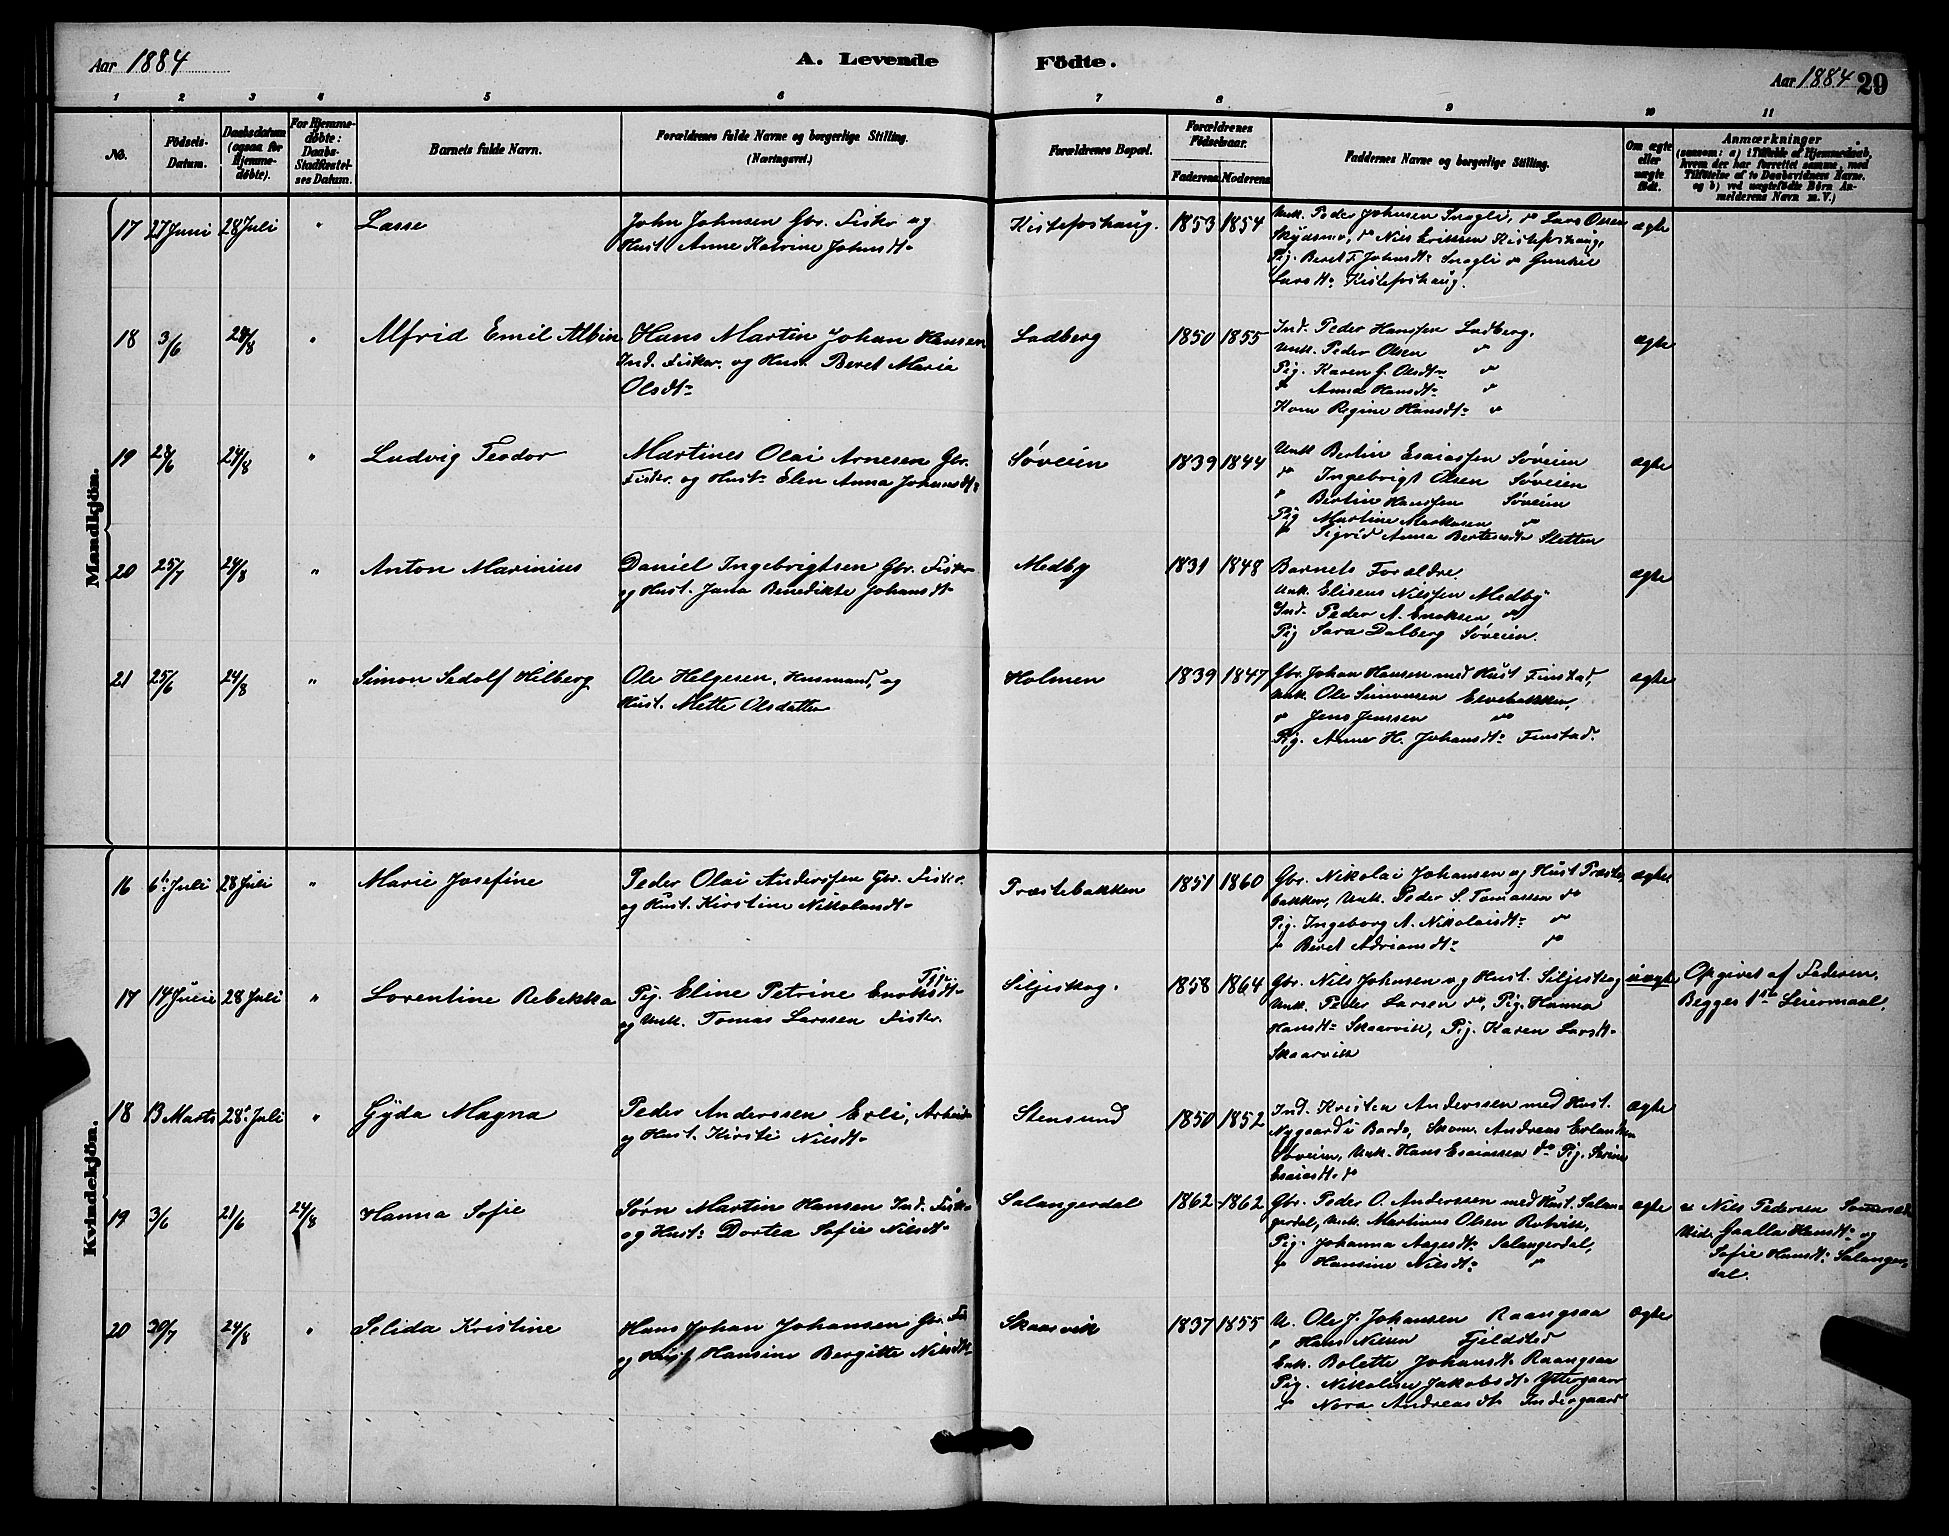 Aar 1884
A. Levende Födte.
Aar 1884 29
1 2 3 4 5 6 7 8 9 10 11
No.
Födsels-Datum.
Daabsdatum (ogsaa for Hjemmedøbte).
For Hjemmedøbte: Daabs-Stadfæstelses Datum.
Barnets fulde Navn.
Forældrenes fulde Navne og borgerlige Stilling. (Næringsvei.)
Forældrenes Bopæl.
Forældrenes Födselsaar.
Faderens Moderens
Faddernes Navne og borgerlige Stilling.
Om ægte eller uægte födt.
Anmærkninger
(saasom: a) i Tilfælde af Hjemmedaab,
hvem der har forrettet samme, med
Tilföielse af to Daabsvidners Navne.
og b) ved uægtefödte Börn An-
melderens Navn m. V.)
Mandkjön.
17 27 Juni 28 Juli " Lasse
John Johnsen Gbr. Fisker og
Hust. Anne Katrine Johnsdt.
Kistefoshaug. 1853 1854
Unk. Peder Johnsen Snogli, do Lars Olsen
do Nils Eriksen Kistefoshaug,
Pig. Beret F. Johnsdt. Snogli do
Larsdt. Kistefoshaug.
ægte
18 3/6 24/8 " Alfrid Emil Albin
Hans Martin Johan Hansen
Ind. Fisker. og Hust. Beret Marie
Olsdt.
Ladberg 1850 1855
Ind. Peder Hanssen Ladberg.
Unk. Peder Olsen do
Pig. Karen G. Olsdt. do
do Anna Hansdt. do
Kone Regine Hansdt. do
ægte
19 28/6 24/8 " Ludvig Teodor
Martines Olai Arnesen Gbr.
Fisker. og Hust. Elen Anna Johansdt.
Søveien 1839 1844
Unk. Bertin Esaiassen Søveien
do Ingebrigt Olsen Søveien
do Bertin Hanssen Søveien
Pig Martine Markusen do
do Sigrid Anna Sletten
ægte
20 25/7 24/8 " Anton Marinius
Daniel Ingebrigtsen Gbr. Fisker
og Hust. Jana Benedikte Johansdt.
Medby 1831 1848
Barnets Forældre.
Unk. Eliseus Nilssen Medby
Ind. Peder A. Enoksen do
Pig Sara Dalberg Søveien.
ægte
21 25/6 24/8 " Simon Sedolf Hilberg
Ole Helgesen. Husmand, og
Hust. Mette Olsdatter
Holmen 1839 1847
Gbr. Johan Hansen med Hust Finstad,
Unk. Ole Simonsen Elvebakken,
do Jens Jenssen do
Pig. Anne H. Johansdt. Finstad.
ægte
Kvindekjön.
16 6te Juli 28 Juli " Marie Josefine
Peder Olai Anderssen Gbr. Fisker.
og Hust. Kirstine Nikolaidt.
Præstebakken 1851 1860
Gbr. Nikolai Johansen og Hust Præste-
bakken, Unk. Peder S. Tomassen do
Pig. Ingeborg A. Nikolaisdt. do
do Beret Adriansdt. do
ægte
17 14 Juni 28 Juli " Lorentine Rebekka
Pig. Eline Petrine Enoksdt. Tjp.
og Unk. Tomas Larssen Fisker.
Siljeskog. 1858 1864
Gbr. Nils Johnsen og Hust. Siljeskog
Unk. Peder Larsen do, Pig. Hanna
Hansdt. Skaarvik, Pig. Karen Larsdt.
Skaarvik
uægte
Opgivet af Faderen.
Begges 1ste Leiermaal.
18 13 Marts 28 Juli " Gyda Magna
Peder Anderssen Erli, Arbeider
og Hust. Kirsti Nilsdt.
Stensund 1850 1852
Ind. Kristen Anderssen med Hust.
Nygaard i Bardo, Skom. Andreas Erlandsen
Søveien, Unk. Hans Esaiassen do Pig.
Esaiasdt. do
Ægte
19 3/6 21/6 24/8 Hanna Sofie
Sørn Martin Hansen Ind. Fisk.
og Hust. Dortea Sofie Nilsdt.
Salangerdal 1862 1862
Gbr. Peder O. Anderssen med Hust. Salan-
gerdal, Unk. Martinus Olsen Rotvik,
Pig. Johanna Aagesdt. Salangerdal,
do Hansine Nilsdt. do
ægte
a: Nils Pedersen
Vid. Gaalla Hansdt. og
Sofie Hansdt. Salanger-
dal.
20 30/7 24/8 " Selida Kristine
Hans Johan Johansen Gbr. Fi
og Hust Hansine Bergitte Nilsdt.
Skaarvik 1837 1855
U. Ole J. Johansen Raangsaa
do Hans Nilsen Fjeldstad
Enk. Bolette Johansdt. Raangsaa
Pig. Nikoline Jakobsdt. Yttergaard
do Nora Andreasdt. Indergaard
Ægte